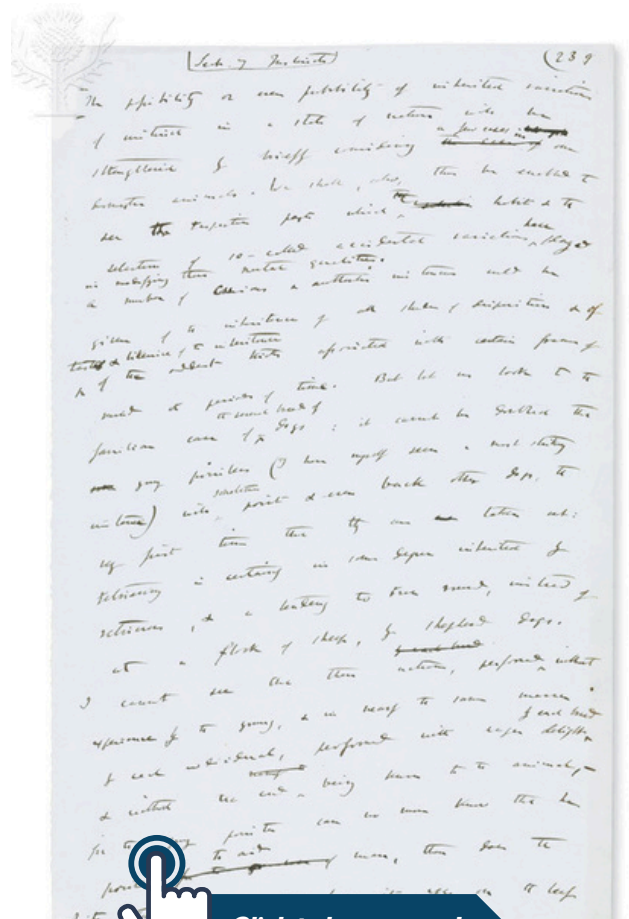 [Sect. 7 Instinct] (239
The possibility or even probability of inherited variations
of instinct in a state of nature will be
strengthened by briefly considering a few cases in our
domestic animals. We shall, also, thus be enabled to
see the respective parts which habit & the
selection of so-called accidental variations have played
in modifying the mental qualities.
a number of curious & authentic instances could be
given of the inheritance of all shades of disposition & of
tastes & likewise of the inheritance
of the oddest tricks associated with certain frames of
mind or periods of time. But let us look to the
familiar case of the several breeds of dogs : it cannot be doubted that
young pointers (I have myself seen a most striking
instance) will sometimes point & even back other dogs, the
very first time that they are taken out;
retrieving is certainly in some degree inherited by
retrievers, & a tendency to run round, instead of
at a flock of sheep, by shepherd dogs.
I cannot see that these actions, performed without
experience by the young, & in nearly the same manner
by each individual, performed with eager delight by each breed
& without the end being known to the animal,
for the young pointer can no more know that he
points to aid man, than does the